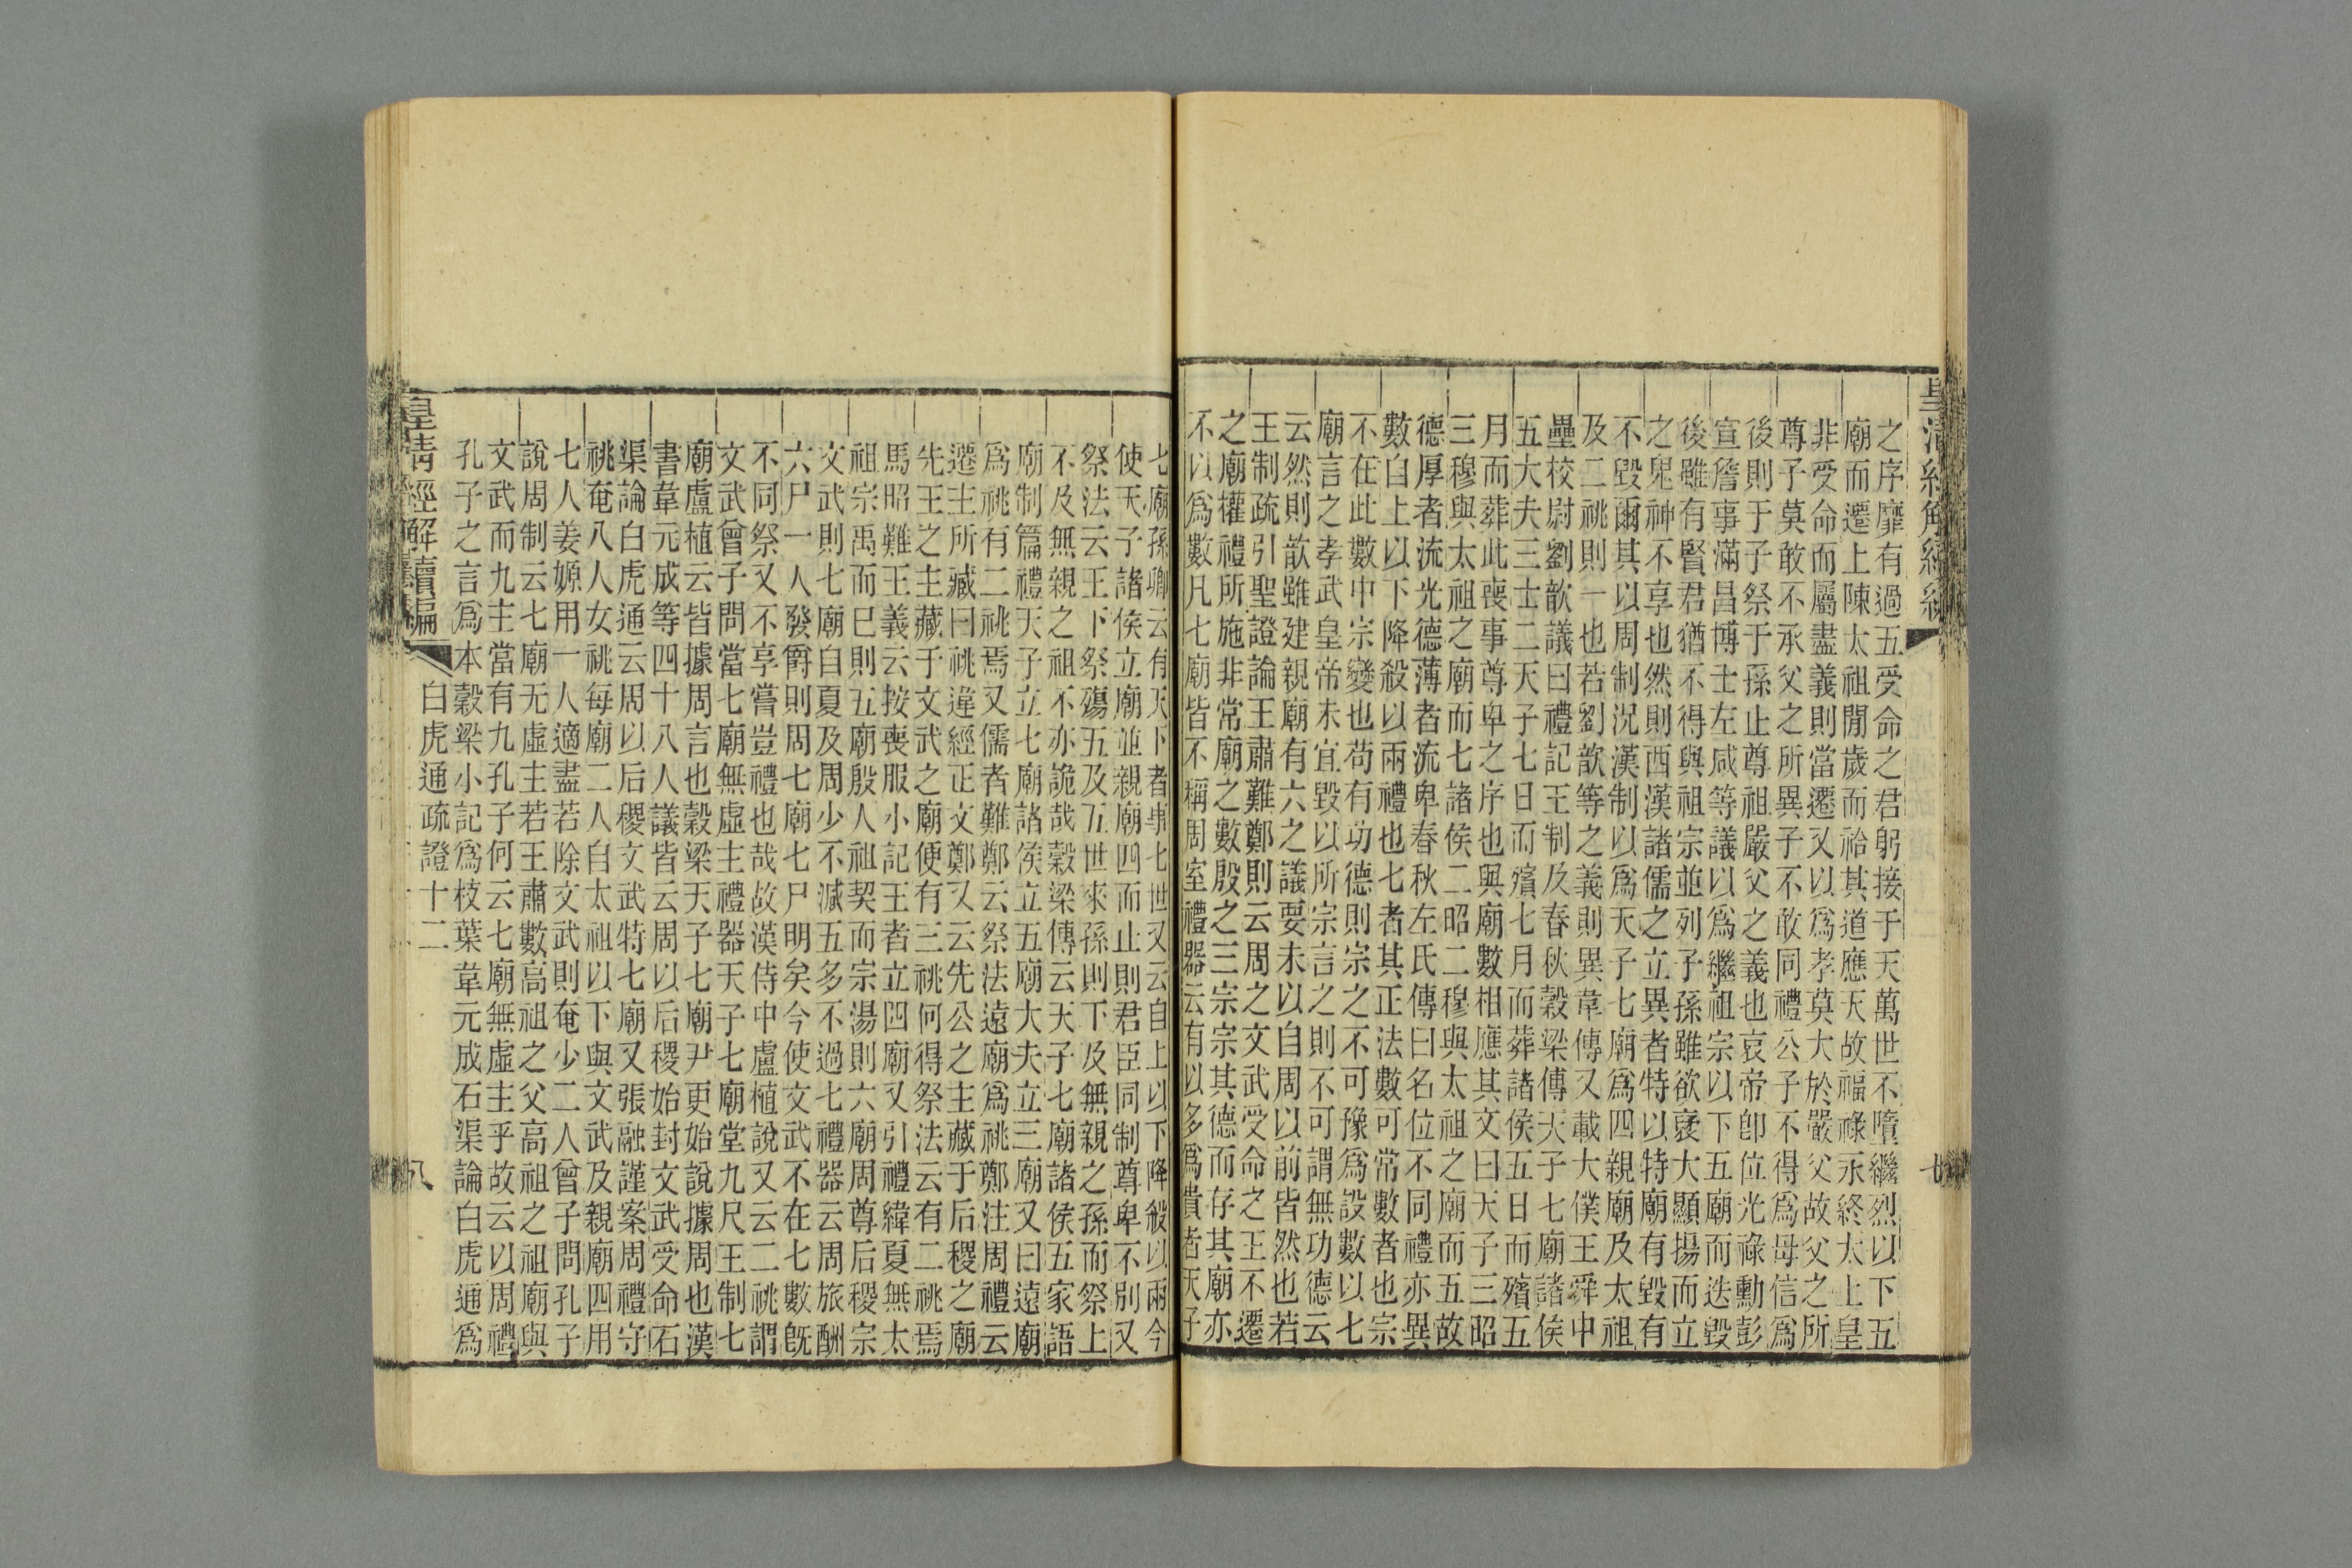 皇清經解續編
七
之序靡有過五受命之君躬接于天萬世不墮繼烈以下五
廟而遷上陳太祖閒歲而祫其道應天故福祿永終太上皇
非受命而屬盡義則當遷又以爲孝莫大於嚴父故父之所
尊子莫敢不承父之所異子不敢同禮公子不得爲母信爲
後則于子祭于孫止尊祖嚴父之義也哀帝卽位光祿勳彭
宣詹事滿昌博士左咸等議以爲繼祖宗以下五廟而迭毀
後雖有賢君猶不得與祖宗並列子孫雖欲褒大顯揚而立
之鬼神不享也然則西漢諸儒之立異者特以特廟有毀有
不毀爾其以周制況漢制以爲天子七廟爲四親廟及太祖
及二祧則一也若劉歆等之義則異韋傳又載大僕王舜中
壘校尉劉歆議曰禮記王制及春秋穀梁傳天子七廟諸侯
五大夫三士二天子七日而殯七月而葬諸侯五日而殯五
月而葬此喪事尊卑之序也與廟數相應其文曰天子三昭
三穆與太祖之廟而七諸侯二昭二穆與太祖之廟而五故
德厚者流光德薄者流卑春秋左氏傳曰名位不同禮亦異
數自上以下降殺以兩禮也七者其正法數可常數者也宗
不在此數中宗變也苟有功德則宗之不可豫爲設數以七
廟言之孝武皇帝未宜毀以所宗言之則不可謂無功德云
云然則歆雖建親廟有六之議要未以自周以前皆然也若
王制疏引聖證論王肅難鄭則云周之文武受命之王不遷
之廟權禮所施非常廟之數殷之三宗宗其德而存其廟亦
不以爲數凡七廟皆不稱周室禮器云有以多爲貴者天子
七廟孫卿云有天下者事七世又云自上以下降殺以兩今
使天子諸侯立廟並親廟四而止則君臣同制尊卑不別又
祭法云王下祭殤五及五世來孫則下及無親之孫而祭上
不及無親之祖不亦詭哉穀梁傳云天子七廟諸侯五家語
廟制篇禮天子立七廟諸侯立五廟大夫立三廟又曰遠廟
爲祧有二祧焉又儒者難鄭云祭法遠廟爲祧鄭注周禮云
遷主所藏曰祧違經正文鄭又云先公之主藏于后稷之廟
先王之主藏于文武之廟便有三祧何得祭法云有二祧焉
馬昭難王義云按喪服小記王者立四廟又引禮緯夏無太
祖宗禹而已則五廟殷人祖契而宗湯則六廟周尊后稷宗
文武則七廟自夏及周少不減五多不過七禮器云周旅酬
六尸一人發爵則周七廟七尸明矣今使文武不在七數旣
不同祭又不享嘗豈禮也哉故漢侍中盧植說又云二祧謂
文武曾子問當七廟無虛主禮器天子七廟堂九尺王制七
廟盧植云皆據周言也穀梁天子七廟尹更始說據周也漢
書韋元成等四十八人議皆云周以后稷始封文武受命石
渠論白虎通云周以后稷文武特七廟又張融謹案周禮守
祧奄八人女祧每廟二人自太祖以下與文武及親廟四用
七人姜嫄用一人適盡若除文武則奄少二人曾子問孔子
說周制云七廟无虛主若王肅數高祖之父高祖之祖廟與
文武而九主當有九孔子何云七廟無虛主乎故云以周禮
孔子之言爲本穀梁小記爲枝葉韋元成石渠論白虎通爲
皇清經解續編
白虎通疏證十二
八